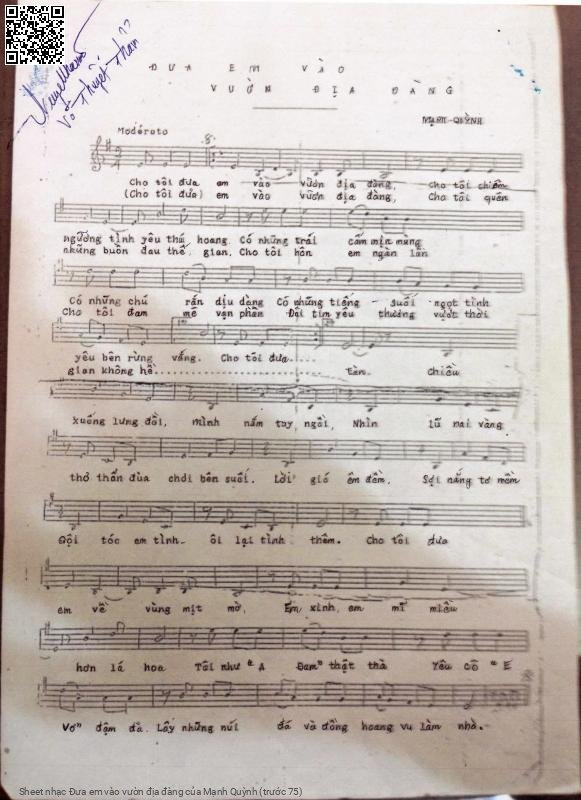 Võ Thuyết Tham ??
ĐƯA EM VÀO
VƯỜN ĐỊA ĐÀNG
MẠNH-QUỲNH
Modérato
Cho tôi đưa em vào vườn địa đàng, cho tôi chiêm
(Cho tôi đưa) em vào vườn địa đàng, Cho tôi quên
ngưỡng tình yêu thú hoang. Có những trái cấm mịn màng
những buồn đau thế gian. Cho tôi hôn em ngàn lần
Có những chú rắn dịu dàng Có những tiếng suối ngọt tình
Cho tôi đam mê vạn phần Đại tim yêu thương vượt thời
yêu bên rừng vắng. Cho tôi đưa....
gian không hề.............................. tàn. Chiều
xuống lưng đồi, mình nắm tay ngồi, Nhìn lũ nai vàng
thơ thẩn đùa chơi bên suối. Lời gió êm đềm, Sợi nắng tơ mềm
Gội tóc em tình- ôi lại tình thêm. Cho tôi đưa
em về vùng mịt mờ, Em xinh, em mĩ miều
hơn lá hoa Tôi như "A Đam" thật thà Yêu cô "E
Vơ" đậm đà. Lấy những núi đá và đồng hoang vu làm nhà.
Sheet nhạc Đưa em vào vườn địa đàng của Mạnh Quỳnh (trước 75)